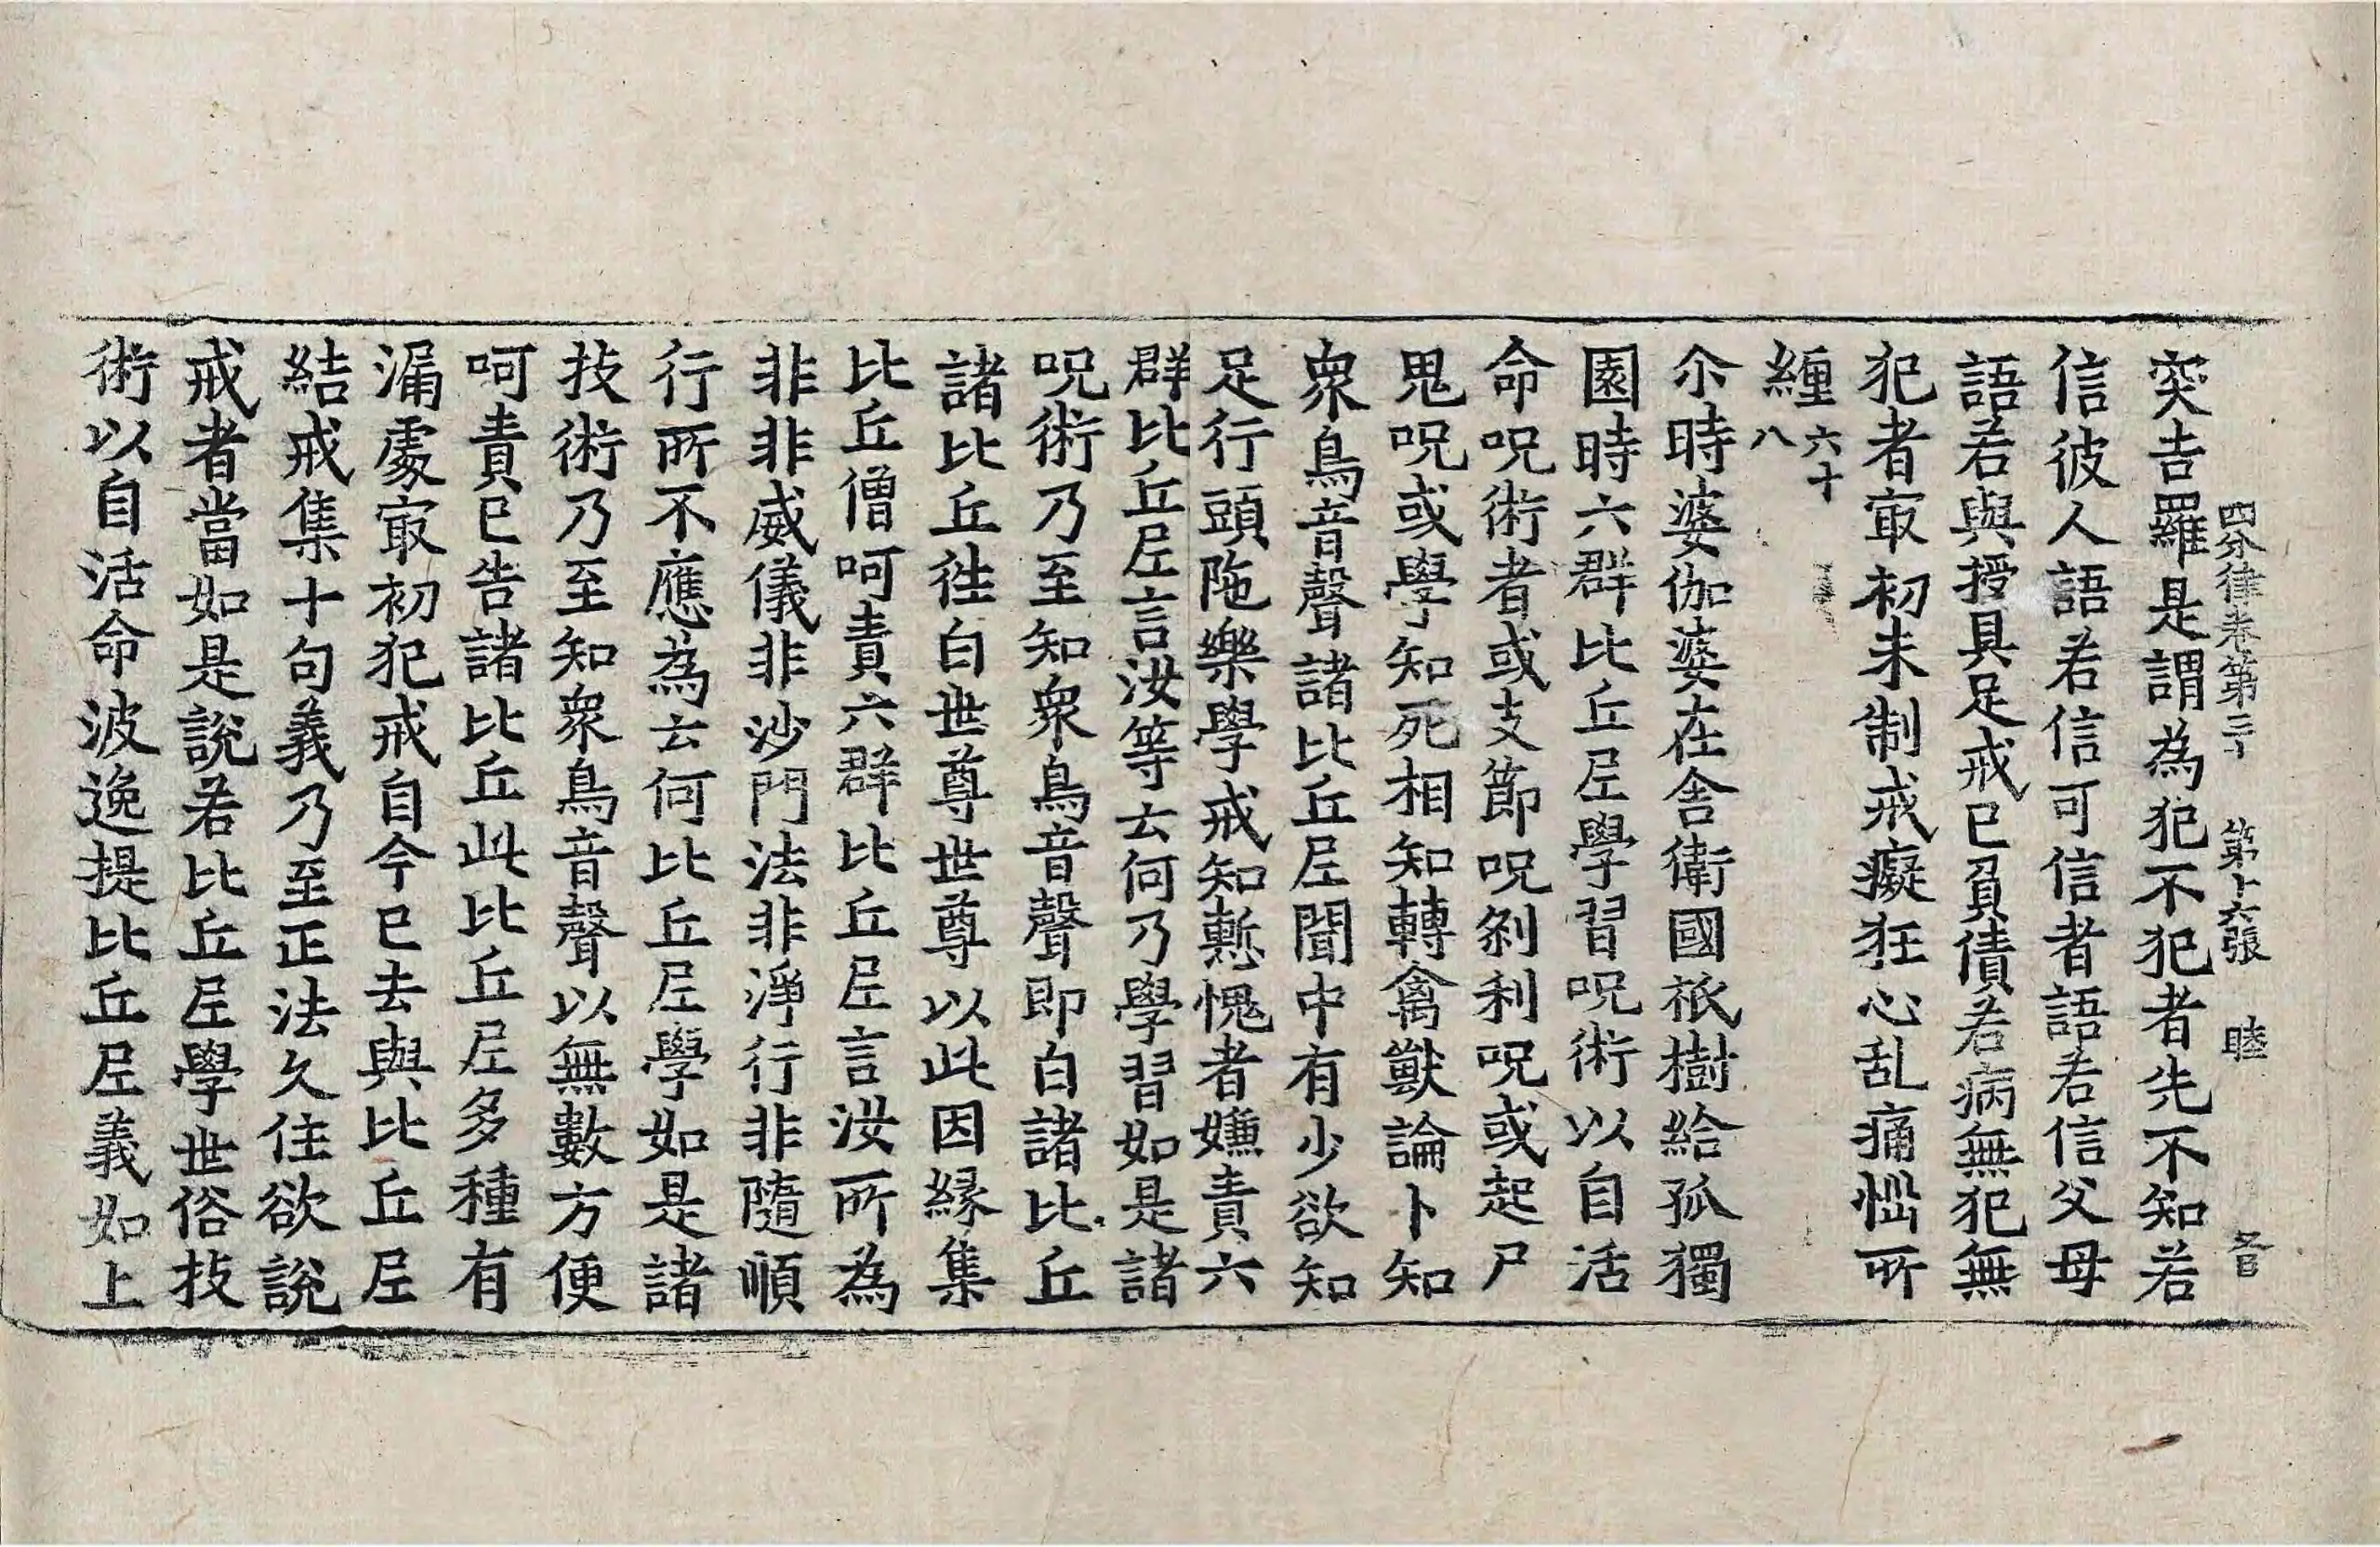 四分律卷第三十 第十六張 睦
突吉羅是謂為犯不犯者先不知若
信彼人語若信可信者語若信父母
語若與授具足戒已負債若病無犯無
犯者㝡初未制戒癡狂心乱痛惱所
纏六十八
尒時婆伽婆在舍衛國祇樹給孤獨
園時六群比丘𡰱學習呪術以自活
命呪術者或支節呪剎利呪或起尸
鬼呪或學知死相知轉禽獸論卜知
衆鳥音聲諸比丘𡰱聞中有少欲知
足行頭陁樂學戒知慙愧者嫌責六
群比丘𡰱言汝等云何乃學習如是諸
呪術乃至知衆鳥音聲即白諸比丘
諸比丘徃白世尊世尊以此因緣集
比丘僧呵責六群比丘𡰱言汝所為
非非威儀非沙門法非淨行非隨順
行所不應為云何比丘𡰱學如是諸
技術乃至知衆鳥音聲以無數方便
呵責已告諸比丘此比丘𡰱多種有
漏處㝡初犯戒自今已去與比丘𡰱
結戒集十句義乃至正法久住欲說
戒者當如是說若比丘𡰱學世俗技
術以自活命波逸提比丘𡰱義如上